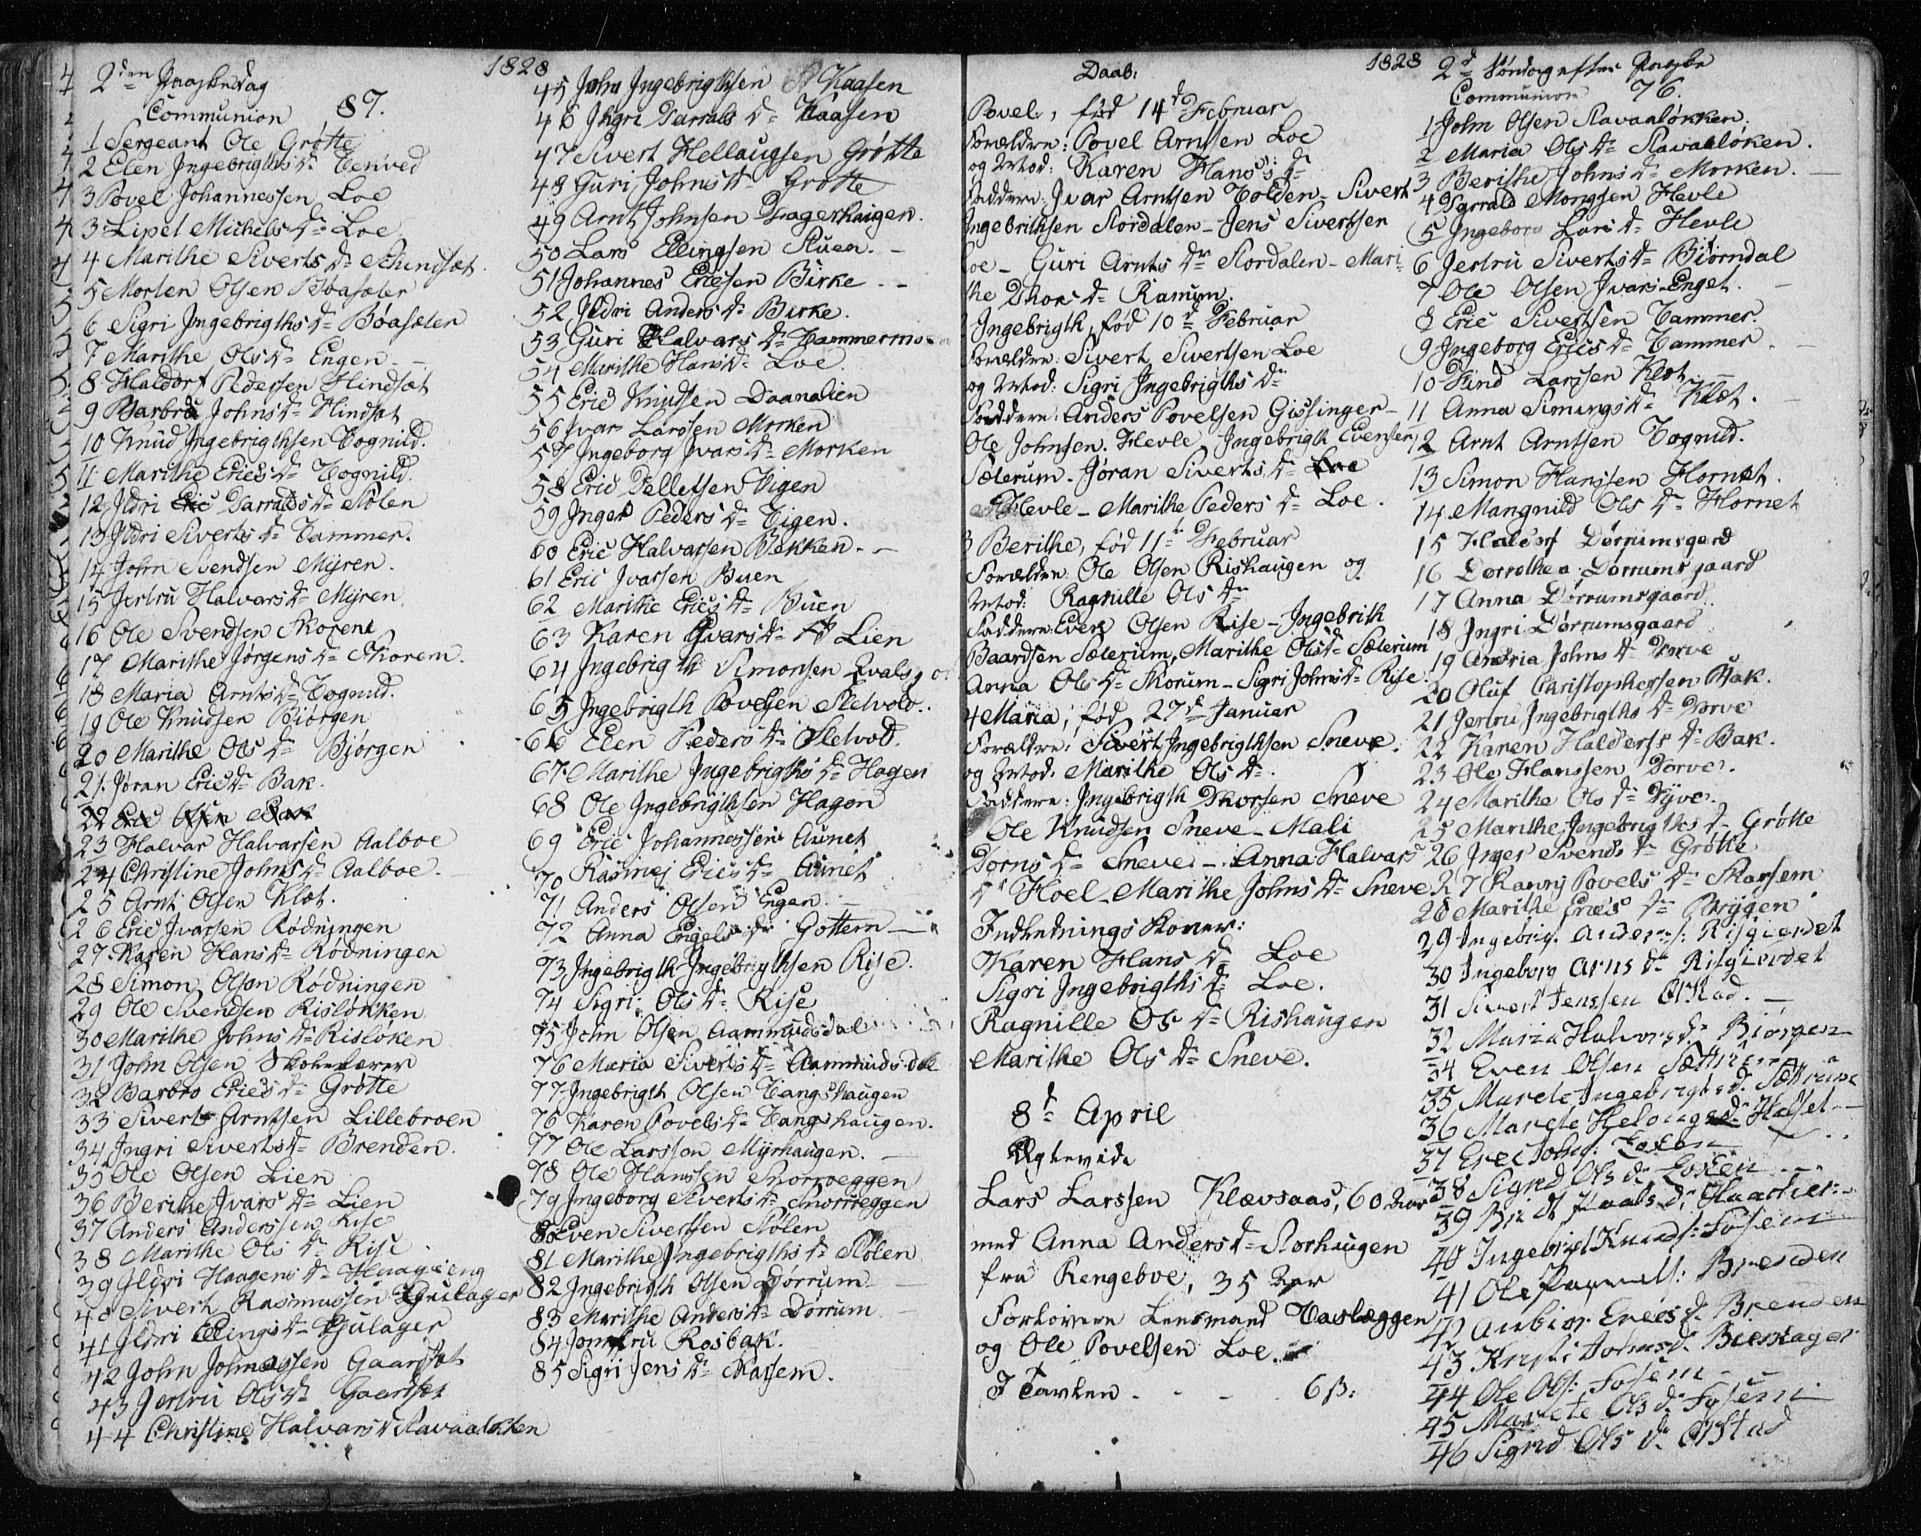 1828
2den Paaskedag
Communion 87.
1 Sergeant Ole Grøtte
2 Elen Ingebrigths Dr
3 Povel Johannessen Loe
3 Lipet Michels Dr Loe
4 Marithe Siverts Dr
5 Morten Olsen Bøasæter
6 Sigri Ingebrigths Dr Bøasæter
7 Marithe Ols Dr Engen
8 Haldorf Pedersen Hindsæt
9 Barbru Johns Dr Hindsæt
10 Knud Ingebrigthsen Tognild.
11 Marithe Erics Dr Tognild.
12 Ildri Eric Darralds Dr Stølen
13 Ildri Siverts Dr Tammer.
14 John Svendsen Myren.
15 Jertru Halvars Dr Myren
16 Ole Svendsen Skorem
17 Marithe Jørgens Dr Skorem.
18 Maria Arnts Dr Tognild.
19 Ole Knudsen Biørgen
20 Marithe Ols Dr Bjørgen
21 Jøran Erics Dr Bak.
22 Eric Olsen Bak
23 Halvar Halvarsen Aalboe
24 Christine Johns Dr Aalboe.
25 Arnt Olsen Klæt.
26 Eric Ivarsen Rødningen
27 Karen Hans Dr Rødningen
28 Simon Olson Rødningen
29 Ole Svendsen Risløkken
30 Marithe Johns Dr Risløken
31 John Olsen Skolelærer
32 Barbro Erics Dr Grøtte
33 Sivert Arntsen Lillebroen
34 Ingri Siverts Dr Brenden.
35 Ole Olsen Lien
36 Berithe Ivars Dr Lien
37 Anders Anderssen Rise
38 Marithe Ols Dr Rise
39 Ildri Haagens Dr Haagaeng
40 Sivert Rasmussen Gjulager
41 Ildri Ellings Dr Gjulager
42 John Johnassen Gaardsæt
43 Jertru Ols Dr Gaardsæt
44 Christine Halvars Dr Ravaaløkken
45 John Ingebrigthsen Kaasen
46 Ingri Darralds Dr Kaasen
47 Sivert Hellaugsen Grøtte
48 Guri Johns Dr Grøtte
49 Arnt Johnsen Fagerhaugen.
50 Lars Ellingsen Stuen.
51 Johannes Ericsen Birke
52 Ildri Anders Dr Birke.
53 Guri Halvars Dr Tammermoen
54 Marithe Hans Dr Loe.
55 Eric Knudsen Daanalien
56 Ivar Larssen Morken
57 Ingeborg Ivars Dr Morken
58 Eric Pellelsen Vigen
59 Inger Peders Dr Vigen.
60 Eric Halvarsen Bekken.
61 Eric Ivarsen Buen
62 Marithe Erics Dr Buen
63 Karen Ivars Dr Lien
64 Ingebrigth Simonsen
65 Ingebrigth Povelsen Sletvold.
66 Elen Peders Dr Sletvold.
67 Marithe Ingebrigths Dr Hagen
68 Ole Ingebrigthsen Hagen
69 Eric Johannessen Aunet
70 Rasmej Erics Dr Aunet
71 Anders Olson Engen.
72 Anna Engels Dr Gottem
73 Ingebrigth Ingebrigthsen Rise.
74 Sigri Ols Dr Rise
75 John Olsen Aammudsdal
76 Maria Siverts Dr Aammudsdal
77 Ingebrigth Olsen Vangshaugen
76 Karen Povels Dr Vangshaugen.
77 Ole Larsson Myrhaugen.
78 Ole Hanssen Snorroeggen
79 Ingeborg Siverts Dr Snorroeggen
80 Even Sivertsen Stølen
81 Marithe Ingebrigths Dr Stølen
82 Ingebrigth Olsen Dørrum
83 Marithe Anders Dr Dørrum
84 Jomfru Rosbak.
85 Sigri Jens Dr Karsem.
Daab. 1828
Povel, fød 14d Februar
Forældre: Povel Arntsen Loe
og Mod: Karen Hans's Dr
Faddere: Ivar Arntsen Tolden - Sivert
Ingebrithsen Stordalen - Jens Sivertsen
Loe - Guri Arnts Dr Stordalen - Mari-
the Thors Dr Ramum.
Ingebrigth, fød 10d Februar
Forældre: Sivert Sivertsen Loe
og Mod: Sigri Ingebrigths Dr
Faddere: Anders Povelsen Gissinger -
Ole Johnsen Hevle, Ingebrigth Evensen,
Sæterum - Jøran Siverts Dr Loe
Hevle - Marithe Peders Dr Loe.
3 Berithe, fød 11d Februar
Forældre: Ole Olsen Rishaugen og
Mod: Ragnille Ols Dr
Faddere: Even Olsen Rise - Ingebrith
Baardsen Sæterum, Marithe Ols Dr Sæterum
Anna Ols Dr Skorum - Sigri Johns Dr Rise.
4 Maria, fød 27d Januar
Forældre: Sivert Ingebrigthsen Sneve.
og Mod: Marithe Ols Dr
Faddere: Ingebrigth Thorsen Sneve
Ole Knudsen Sneve - Mali
Dorns Dr Sneve - Anna Halvars
Dr Hoel - Marithe Johns Dr Sneve
Indledningskoner:
Karen Hans Dr Loe
Sigri Ingebrigths Dr Loe.
Ragnille Ols Dr Rishaugen
Marithe Ols Dr Sneve.
8d April
Egtevide
Lars Larssen Klævsaas, 60 Aar
med Anna Anders Dr Storhaugen
fra Rengeboe, 35 Aar
Forlovere Lensmand Vaslæggen
og Ole Povelsen Loe.
I Tavlen - - - 6 ß:
2d Søndag efter Paaske
Communion 76.
1 John Olsen Ravaaløkken.
2 Maria Ols Dr Ravaaløken.
3 Berithe Johns Dr Morken.
4 Darrald Monssen Hevle
5 Ingeborg Lars Dr Hevle
6 Jertru Siverts Dr Biørndal
7 Ole Olsen Ivars Enget.
8 Eric Sivertsen Tammer.
9 Ingeborg Erics Dr Tammer.
10 Find Larssen Klæt
11 Anna Simungs Dr Klæt.
12 Arnt Arntsen Tognild.
13 Simon Hanssen Hornet.
14 Mangnild Ols Dr Hornet
15 Haldorf Dørrumsgard
16 Dorrothea Dørrumsgaard
17 Anna Dørrumsgaard
18 Ingri Dørrumsgaard
19 Andria Johns Dr Dørve
20 Oluf Christophersen Bak.
21 Jertru Ingebrigths Dr Dørve
22 Karen Haldorfs Dr Bak.
23 Ole Hanssen Dørve.
24 Marithe Ols Dr Dyve.
25 Marithe Ingebrigths Dr Grøtte
26 Inger Svends Dr Grøtte
27 Ranni Povels Dr Karsem
28 Marithe Erics Dr Bryggen
29 Ingebrig. Anders: Risgierdet
30 Ingeborg Arns Dr Risgierdet
31 Sivert Jenssen Olstad.
32 Maria Halvors Dr Biørgen
34 Even Olsen Sættrum
35 Marete Ingebrigts Dr Sættrum
36 Marete Helougs Dr Halset
37 Eric Johns:
38 Sigrid Ols Dr
39 Br: Paals Dr
40 Ingebrigt Knuds: Fosem
41 Ole Brenden
42 Erics Dr Brenden
43 Johns Dr Bierkager
44 Ole Ols: Fosem
45 Marete Ols Dr Fosem
46 Sigrid Ols Dr Olstad